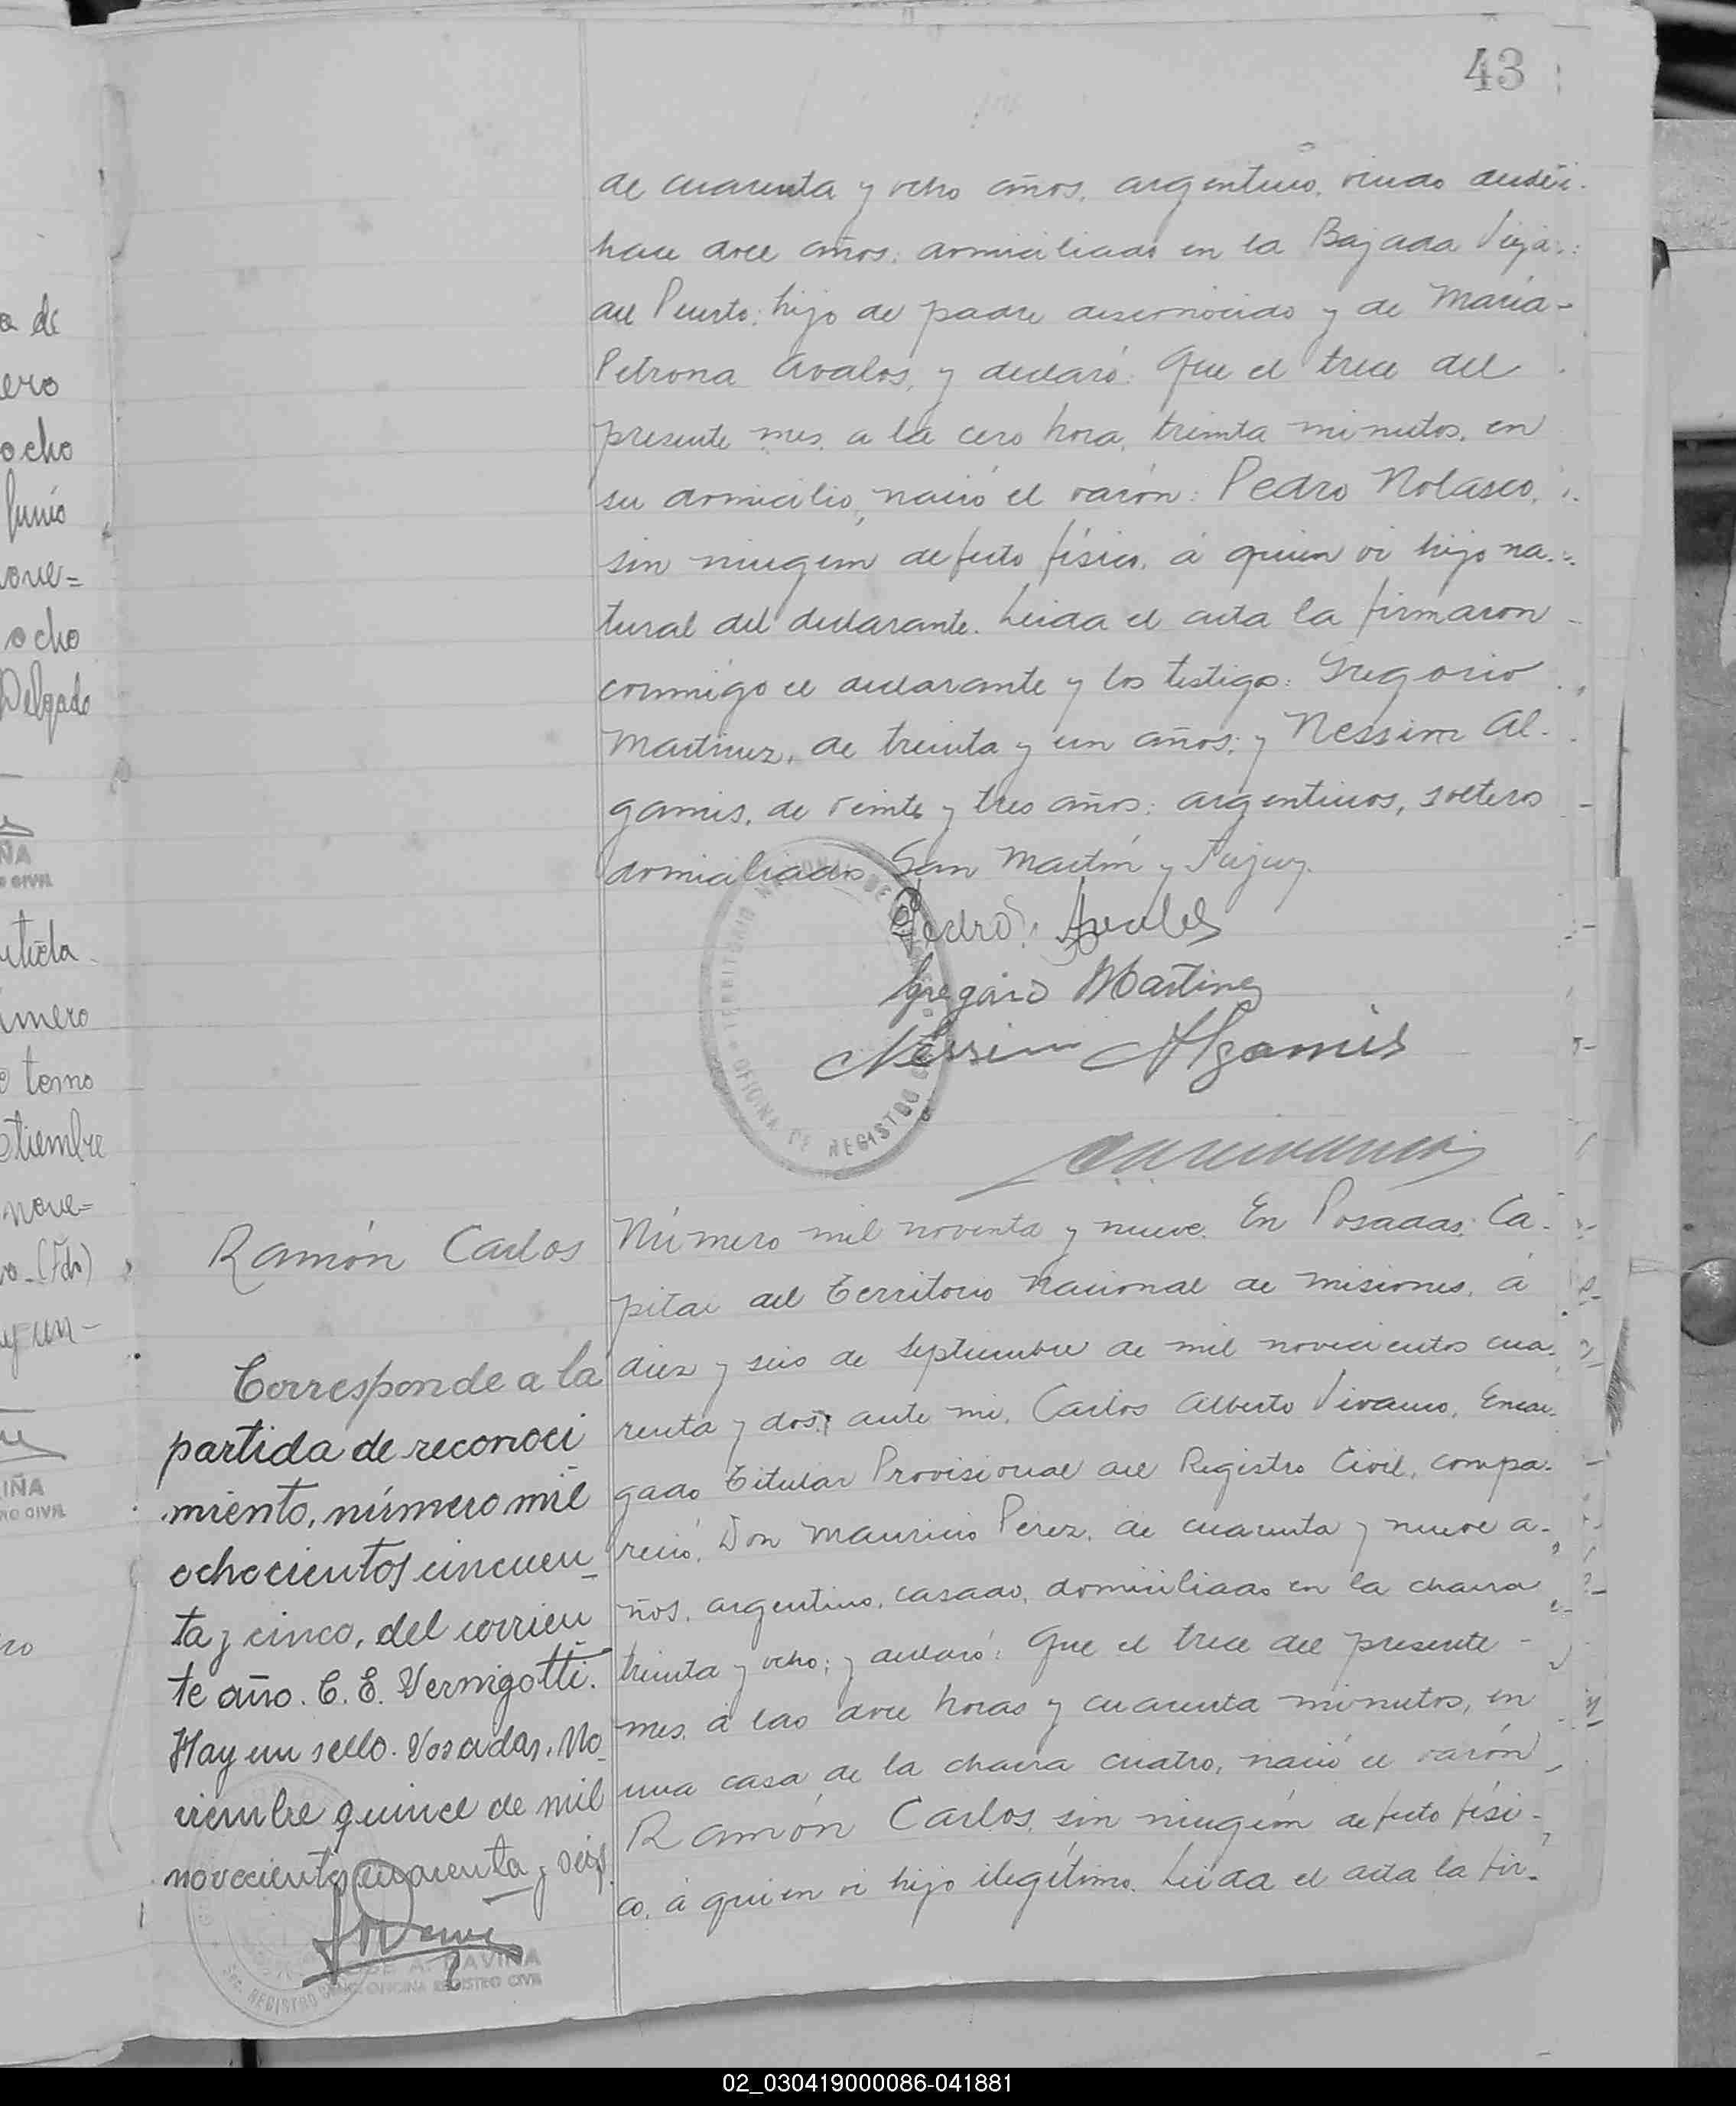 43
de cuarenta y ocho años, argentino, viudo
hace doce años, domiciliado en la Bajada Vieja
del Puerto; hijo de padre desconocido y de María
Petrona Avalos, y declaró: Que el trece del
presente mes, a la cero hora, treinta minutos, en
su domicilio, nació el varón: Pedro Nolasco,
sin ningún defecto físico, á quien vi hijo na-
tural del declarante. Leida el acta la firmaron
conmigo el declarante y los testigos: Gregorio
Martinez, de treinta y un años; y Nessim Al-
gamis, de veinte y tres años; argentinos, solteros
domiciliados San Martín y Jujuy.
Pedro Avalos
Gregorio Martinez
Nessim Algamis
TERRITORIO NACIONAL DE
OFICINA DE REGISTRO
Ramón Carlos
Número mil noventa y nueve. En Posadas, Ca-
pital del Territorio Nacional de Misiones, á
diez y seis de Septiembre de mil novecientos cua-
renta y dos, ante mi, Carlos Alberto Vivanco, Encar-
gado Titular Provisional del Registro Civil, compa-
reció, Don Mauricio Perez, de cuarenta y nueve a-
ños, argentino, casado, domiciliado en la chacra
treinta y ocho; y declaró: Que el trece del presente
mes, á las doce horas y cuarenta minutos, en
una casa de la chacra cuatro, nació el varón
Ramón Carlos, sin ningún defecto físi-
co, á quien vi hijo ilegítimo. Leida el acta la fir-
Corresponde a la
partida de reconoci
miento, número mil
ochocientos cincuen
ta y cinco, del corrien
te año. C. E. Vernigotti.
Hay un sello. Posadas, No
viembre quince de mil
novecientos cuarenta y seis.
JOSE A. DAVIÑA
OFICINA REGISTRO CIVIL
a de
ero
ocho
Junio
nove=
ocho
Delgado
ÑA
CIVIL
rtida
úmero
tomo
tiembre
nove=
o-(Fdo)
y un-
IÑA
RO CIVIL
02_030419000086-041881